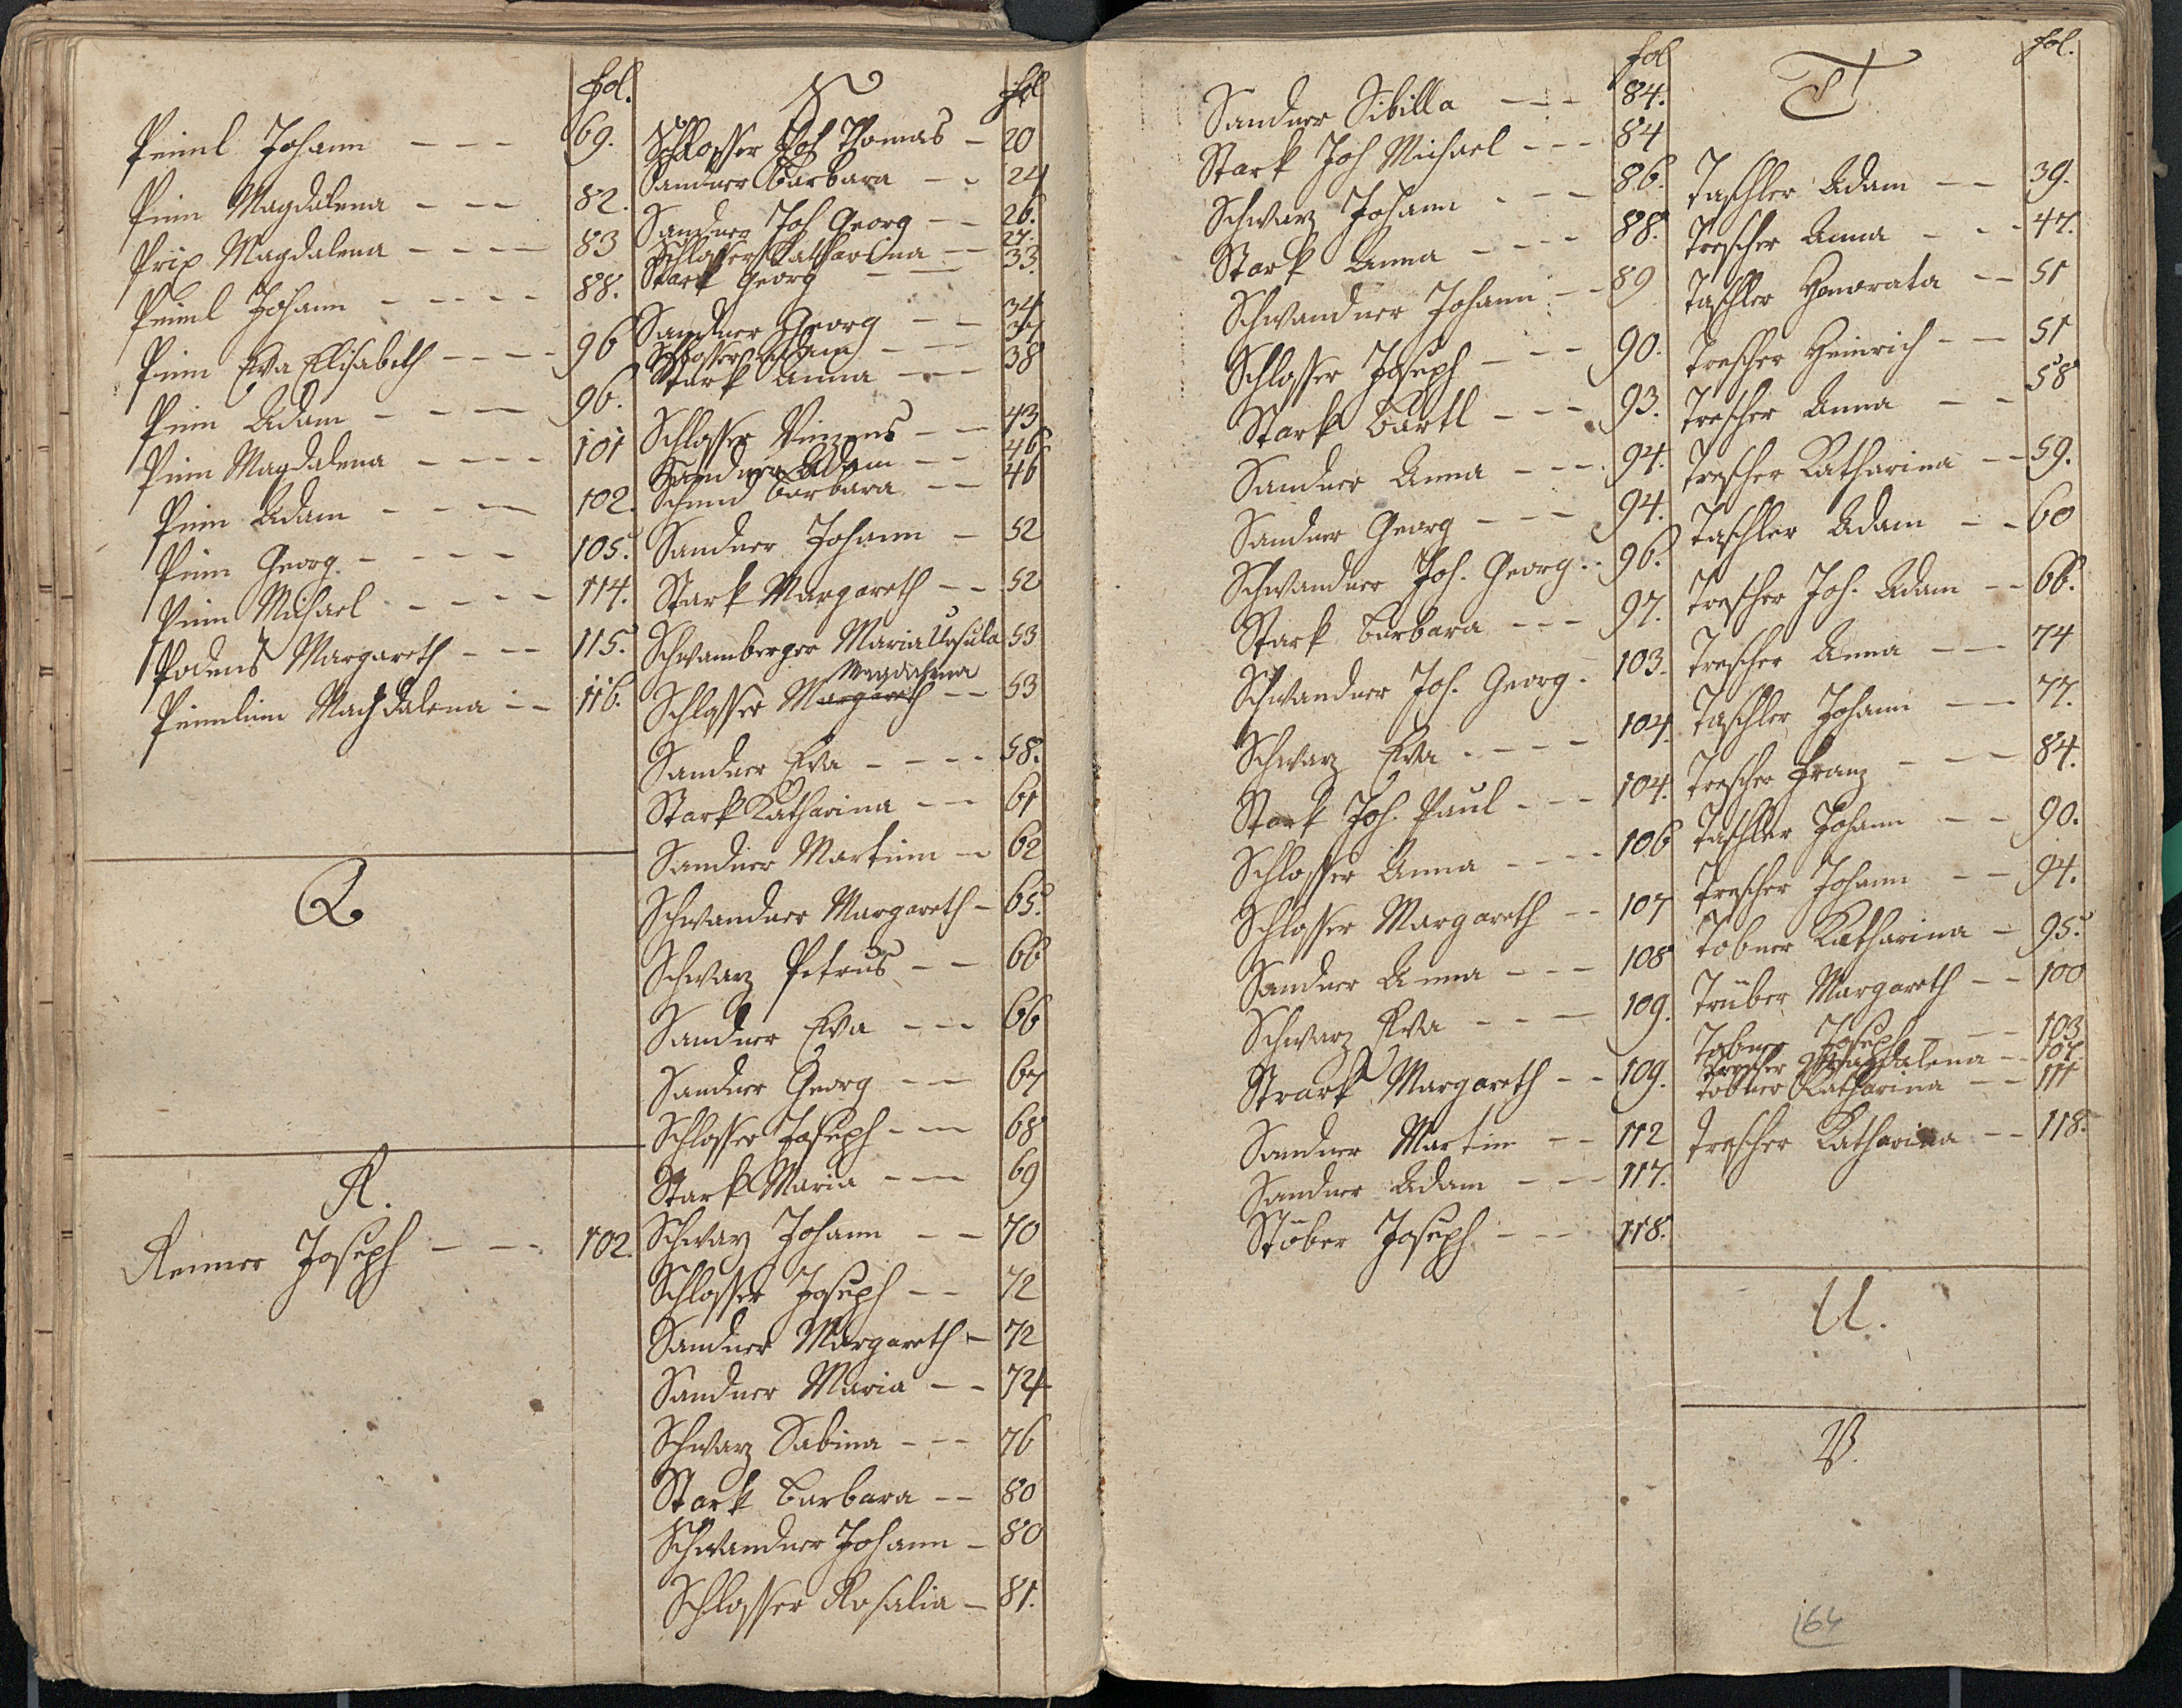 fol.
Peiml Johann - - - 69.
Pim Magdalena - - - 82.
Prix Magdalena - - - - 83
Peiml Johann - - - - - 88.
Pim Eva Elisabeth - - - - 96
Pim Adam - - - - 96.
Pim Magdalena - - - - 101
Pim Adam - - - - 102.
Pim Georg - - - - 105.
Pim Michael - - - - 114.
Margareth - - - 115.
Machdalena - - 116.
Q
R.
Renner Joseph - - - 102.
S
fol
Schlosser Joh Thomas - 20
Sandner Barbara - - 24
Sandner Joh Georg - - 26.
Schlosser Katharina - 27.
Stark Georg - - 33.
Sandner Georg - - 34
Schlosser Adam - - 37
Stark Anna - - 38
Schlosser Vinzens - - 43
Sandner Adam - - 46
Schmid Barbara - - 46
Sandner Johann - 52
Stark Margareth - - 52
Schwamberger Maria Ursula 53
Magdalena
Schlosser Margareth - - 53
Sandner Eva - - - - 58.
Stark Katharina - - 61
Sandner Martin - 62
Schwandner Margareth - 65.
Schwarz Petrus - - 66
Sandner Eva - - - 66
Sandner Georg - - 67
Schlosser Joseph - - 68
Stark Maria - - - 69
Schwarz Johann - - 70
Schlosser Joseph - - 72
Sandner Margareth - 72
Sandner Maria - - 74
Schwarz Sabina - - - 76
Stark Barbara - - 80
Schwandner Johann - 80
Schlosser Rosalia - 81.
fol
Sandner Sibilla - - - 84.
Stark Joh Michael - - - 84
Schwarz Johann - - - 86.
Stark Anna - - - - 88.
Schwandner Johann - - 89
Schlosser Joseph - - - 90.
Stark Bartl - - - 93.
Sandner Anna - - - 94.
Sandner Georg - - - 94.
Schwandner Joh. Georg - - 96.
Stark Barbara - - - 97.
Schwandner Joh. Georg - 103.
Schwarz Eva - - - - 104.
Stark Joh. Paul - - - 104.
Schlosser Anna - - - - 106
Schlosser Margareth - - 107
Sandner Anna - - - 108
Schwarz Eva - - - 109.
Strark Margareth - - 109.
Sandner Martin - - 112
Sandner Adam - - - 117.
Stöber Joseph - - - 118.
T
fol.
Taschler Adam - - 39.
Trescher Anna - - - 47.
Taschler Honorata - - 51
Trescher Heinrich - - 51
Trescher Anna - - 58
Trescher Katharina - - 59.
Taschler Adam - - 60
Trescher Joh. Adam - - 66.
Trescher Anna - - - 74
Taschler Johann - - - 77.
Trescher Franz - - - 84.
Taschler Johann - - 90.
Trescher Johann - - 94.
Tobner Katharina - 95.
Trüber Margareth - - 100
Tobner Joseph - - - 103
Trescher Magdalena - - 107.
Tobner Katharina - - 111
Trescher Katharina - - 118.
U.
V.
164